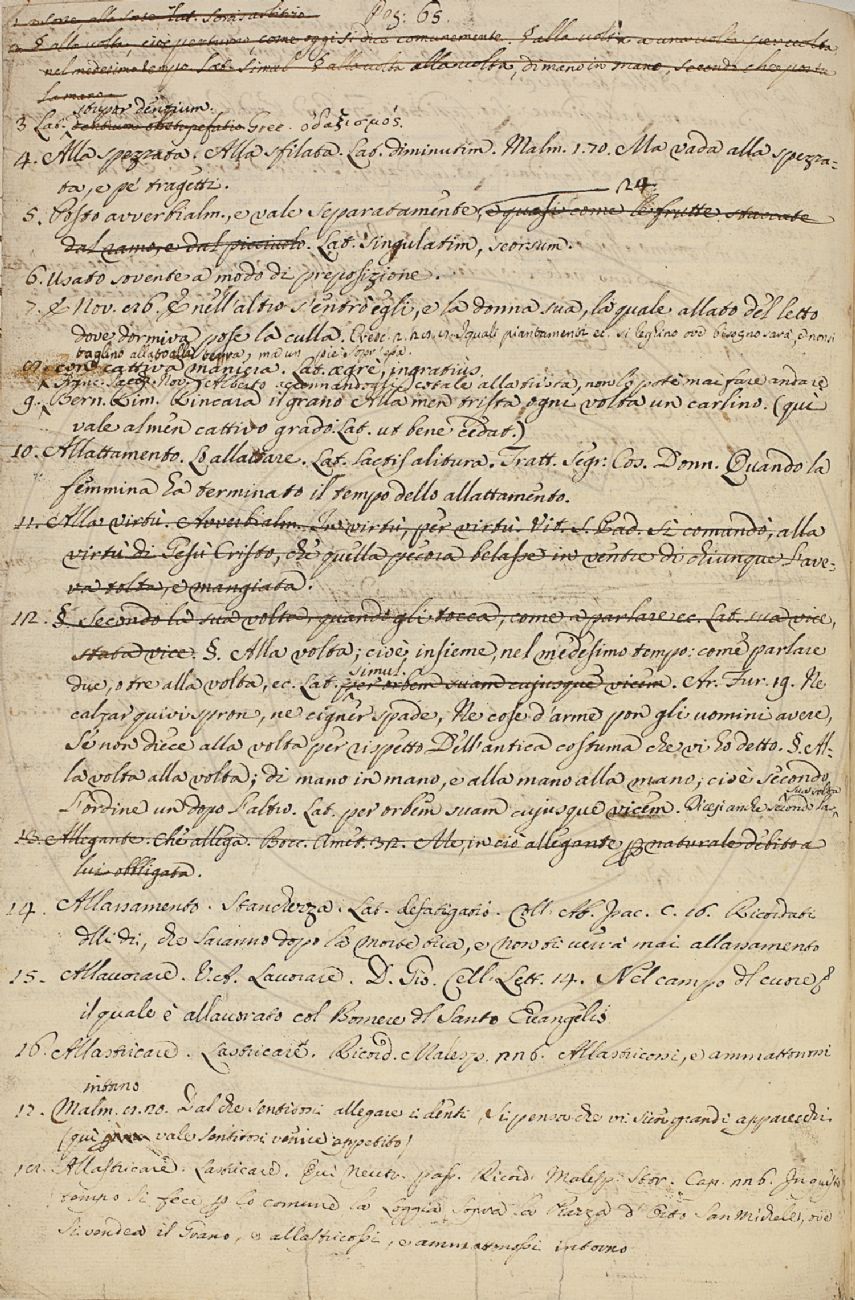 Pag: 65.
1. alla sorte Lat.
2. § alla volta, cioè per turno, come oggi si dice comunemente. § alla volta a una volta per volta
nel medesimo tempo. Lat. simul. § alla volta alla volta, di mano in mano, secondo che porta
la mano.
stupor dentium.
3 Lat. dentium obstupefatio Grec. ὀδαξισμός.
4. Alla spezzata. Alla sfilata. Lat. diminutim. Malm. 1.70. Ma vada alla spezza-
ta, e pe' tragetti.
24
5. Posto avverbialm., e vale separatamente, e quasi come le frutte staccate
dal ramo, e dal picciuolo. Lat. singulatim, seorsum.
6. Usato sovente a modo di preposizione.
7. Nov. nell'altro s'entrò egli, e la donna sua, la quale allato del letto
dove dormiva pose la culla. quali piantamenti ec. si leghino ove bisogno sarà, e non si
taglino allato alla terra, ma un piè sopr'essa.
8. con cattiva maniera. Lat. aegre, ingratius.
Franc. Sacch. Nov. Alberto accomandogli cotale alla trista, non lo potè mai fare andare
9. Bern. Rim. Rincara il grano Alla men trista ogni volta un carlino. (quì
vale almen cattivo grado. Lat. ut bene cedat.)
10. Allattamento. Lo allattare. Lat. lactis alitura. Tratt. Segr: Cos. Donn. Quando la
femmina ha terminato il tempo dello allattamento.
11. Alla virtù. Avverbialm. In virtù, per virtù. Vit. S. Pad. Si comandò, alla
virtù di Gesù Cristo, che quella pecora belasse in ventre di chiunque l'ave-
va tolta, e mangiata.
12. § Secondo la sua volta, quando gli tocca, come a parlare ec. Lat. sua vice,
stata vice. §. Alla volta; cioè insieme, nel medesimo tempo: come parlare
simul.
due, o tre alla volta, ec. Lat. per orbem suam cujusque vicem. Ar. Fur. 19. Ne
calzar quivi spron, ne cigner spade, Ne cose d'arme pon gli uomini avere,
Se non diece alla volta per rispetto Dell'antica costuma che vi ho detto. §. Al-
la volta alla volta; di mano in mano, e alla mano alla mano; cioè secondo
sua volta
l'ordine un dopo l'altro. Lat. per orbem suam cujusque vicem. Dicesi anche secondo la
13. Allegante. Che allega. Bocc. Amet. 32. Me, in ciò allegante naturale debito a
lui obbligata.
14. Allassamento. Stanchezza. Lat. defatigatio. Coll. Ab. Isac. C. 16. Ricordati
dlli dì, che saranno dopo la morte tua, e non ti verrà mai allassamento
15. Allavorare. V. A. Lavorare. D. Gio. Cell. Lett. 14. Nel campo dl cuore
il quale è allavorato col Bomere dl Santo Evangelio
16. Allastricare. Lastricare. Ricord. Malesp. 226. Allastricossi, e ammattonossi
intorno
17. Malm. Dal che sentitosi allegare i denti, Si pensa che vi sien grandi apparecchi.
(quì vale sentitosi venire appetito)
18. Allastricare. Lastricare. Quì Neutr. pass. Ricord. Malesp. Stor. Cap. 226. In questo
tempo si fece lo comune la Loggia sopra la Piazza d' Orto San Michele, ove
si vendea il Grano, e allastricossi, e ammattonossi intorno